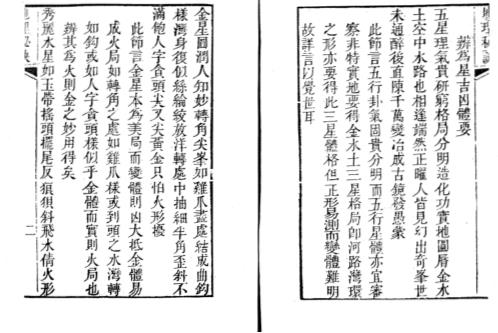 辨為星吉凶體要
五星理氣貴研窮格局分明造化功實地圓唇金水
土空中水路也相逢端然正曜人皆見幻出奇峯世
未通醉後直陳千萬變冶成古鏡發愚蒙
此師言五行卦氣固貴分明而五行星體亦宜審
察非特實地要得金水土三星格局即河路灣環
之形亦要得此三星體格但正形易測而變體難明
故詳言以覺世耳
金星圓潤人知妙轉角尖峯如雞爪盡處結成曲鈎
樣灣身復似絲綸絞放洋轉處中抽細牛角歪斜不
滿飽人字貪頭尖又尖黃金只怕火形擾
此師言金星本為美局而變體則凶大抵金體易
成火局如轉角之處如雞爪樣或到頭之水灣轉
如鈎或如人字貪頭樣似乎金體而實則火局也
辨其為火則金之妙用得矣
秀麗水星如玉帶搖頭擺尾反狼狽斜飛水倩火形
二